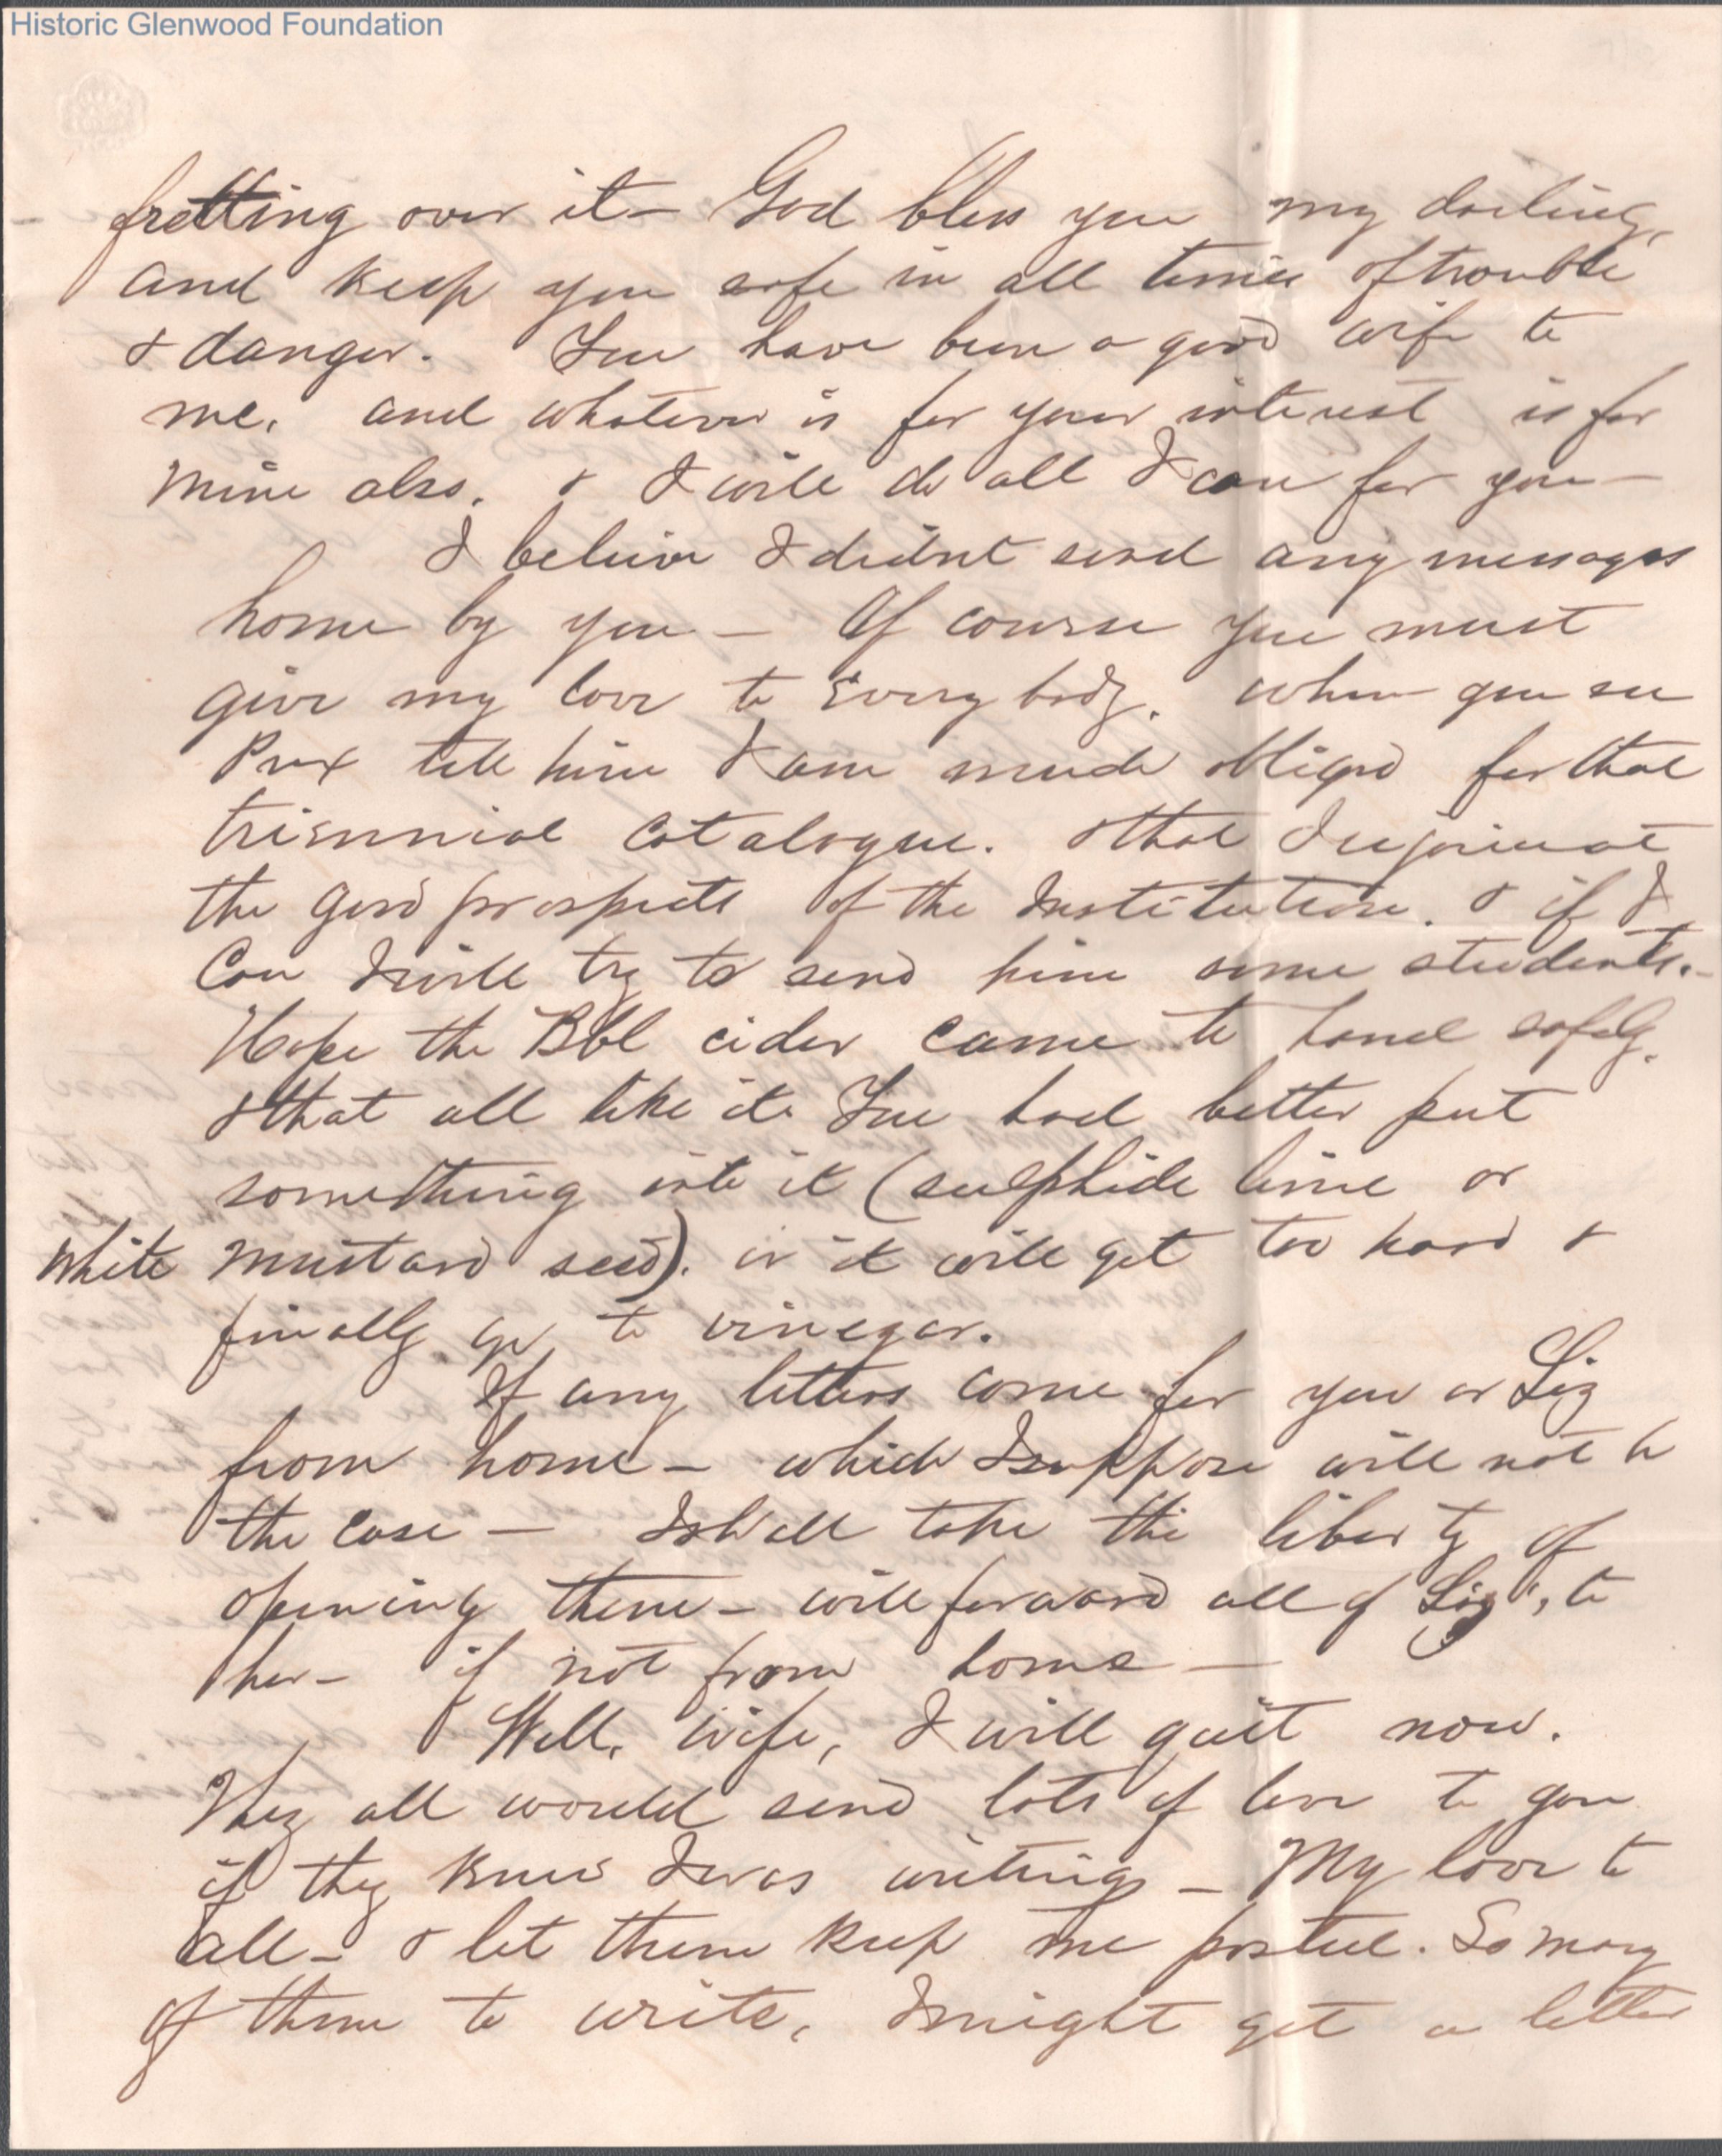 Historic Glenwood Foundation
fretting over it – God bless you my darling,
and keep you safe in all times of trouble
& danger. You have been a good wife to
me, and whatever is for your interest is for
mine also, & I will do all I can for you –
I believe I didnt send any messages
home by you – Of course you must
give my love to Every body. When you see
Prex tell him I am much obliged for that
triennial Catalogue. & that I rejoice at
the good prospects of the Institution. & if I
Can I will try to send him some students. –
Hope the Bbl cider came to hand safely.
& that all like it. You had better put
something into it (sulphide lime or
white mustard seed). or it will get too hard &
finally go to vinegar.
If any letters come for you or Liz
from home – which I suppose will not be
the case – I shall take the liberty of
opening them – will forward all of Liz's, to
her – if not from home –
Well, wife, I will quit now.
They all would send lots of love to you
if they knew I was writing – My love to
all – & let them keep me posted. So many
of them to write, I might get a letter